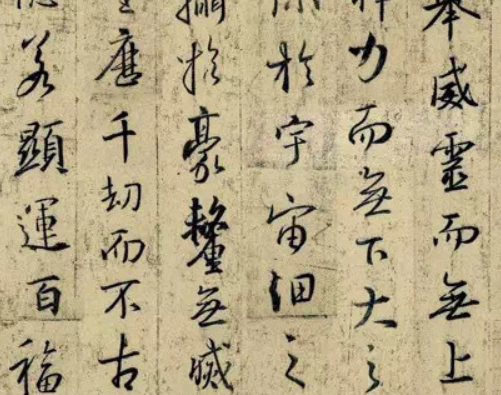 舉威靈而無上
力而無下大之
於宇宙細之
攝於豪釐無滅
歷千劫而不古
若顯運百福